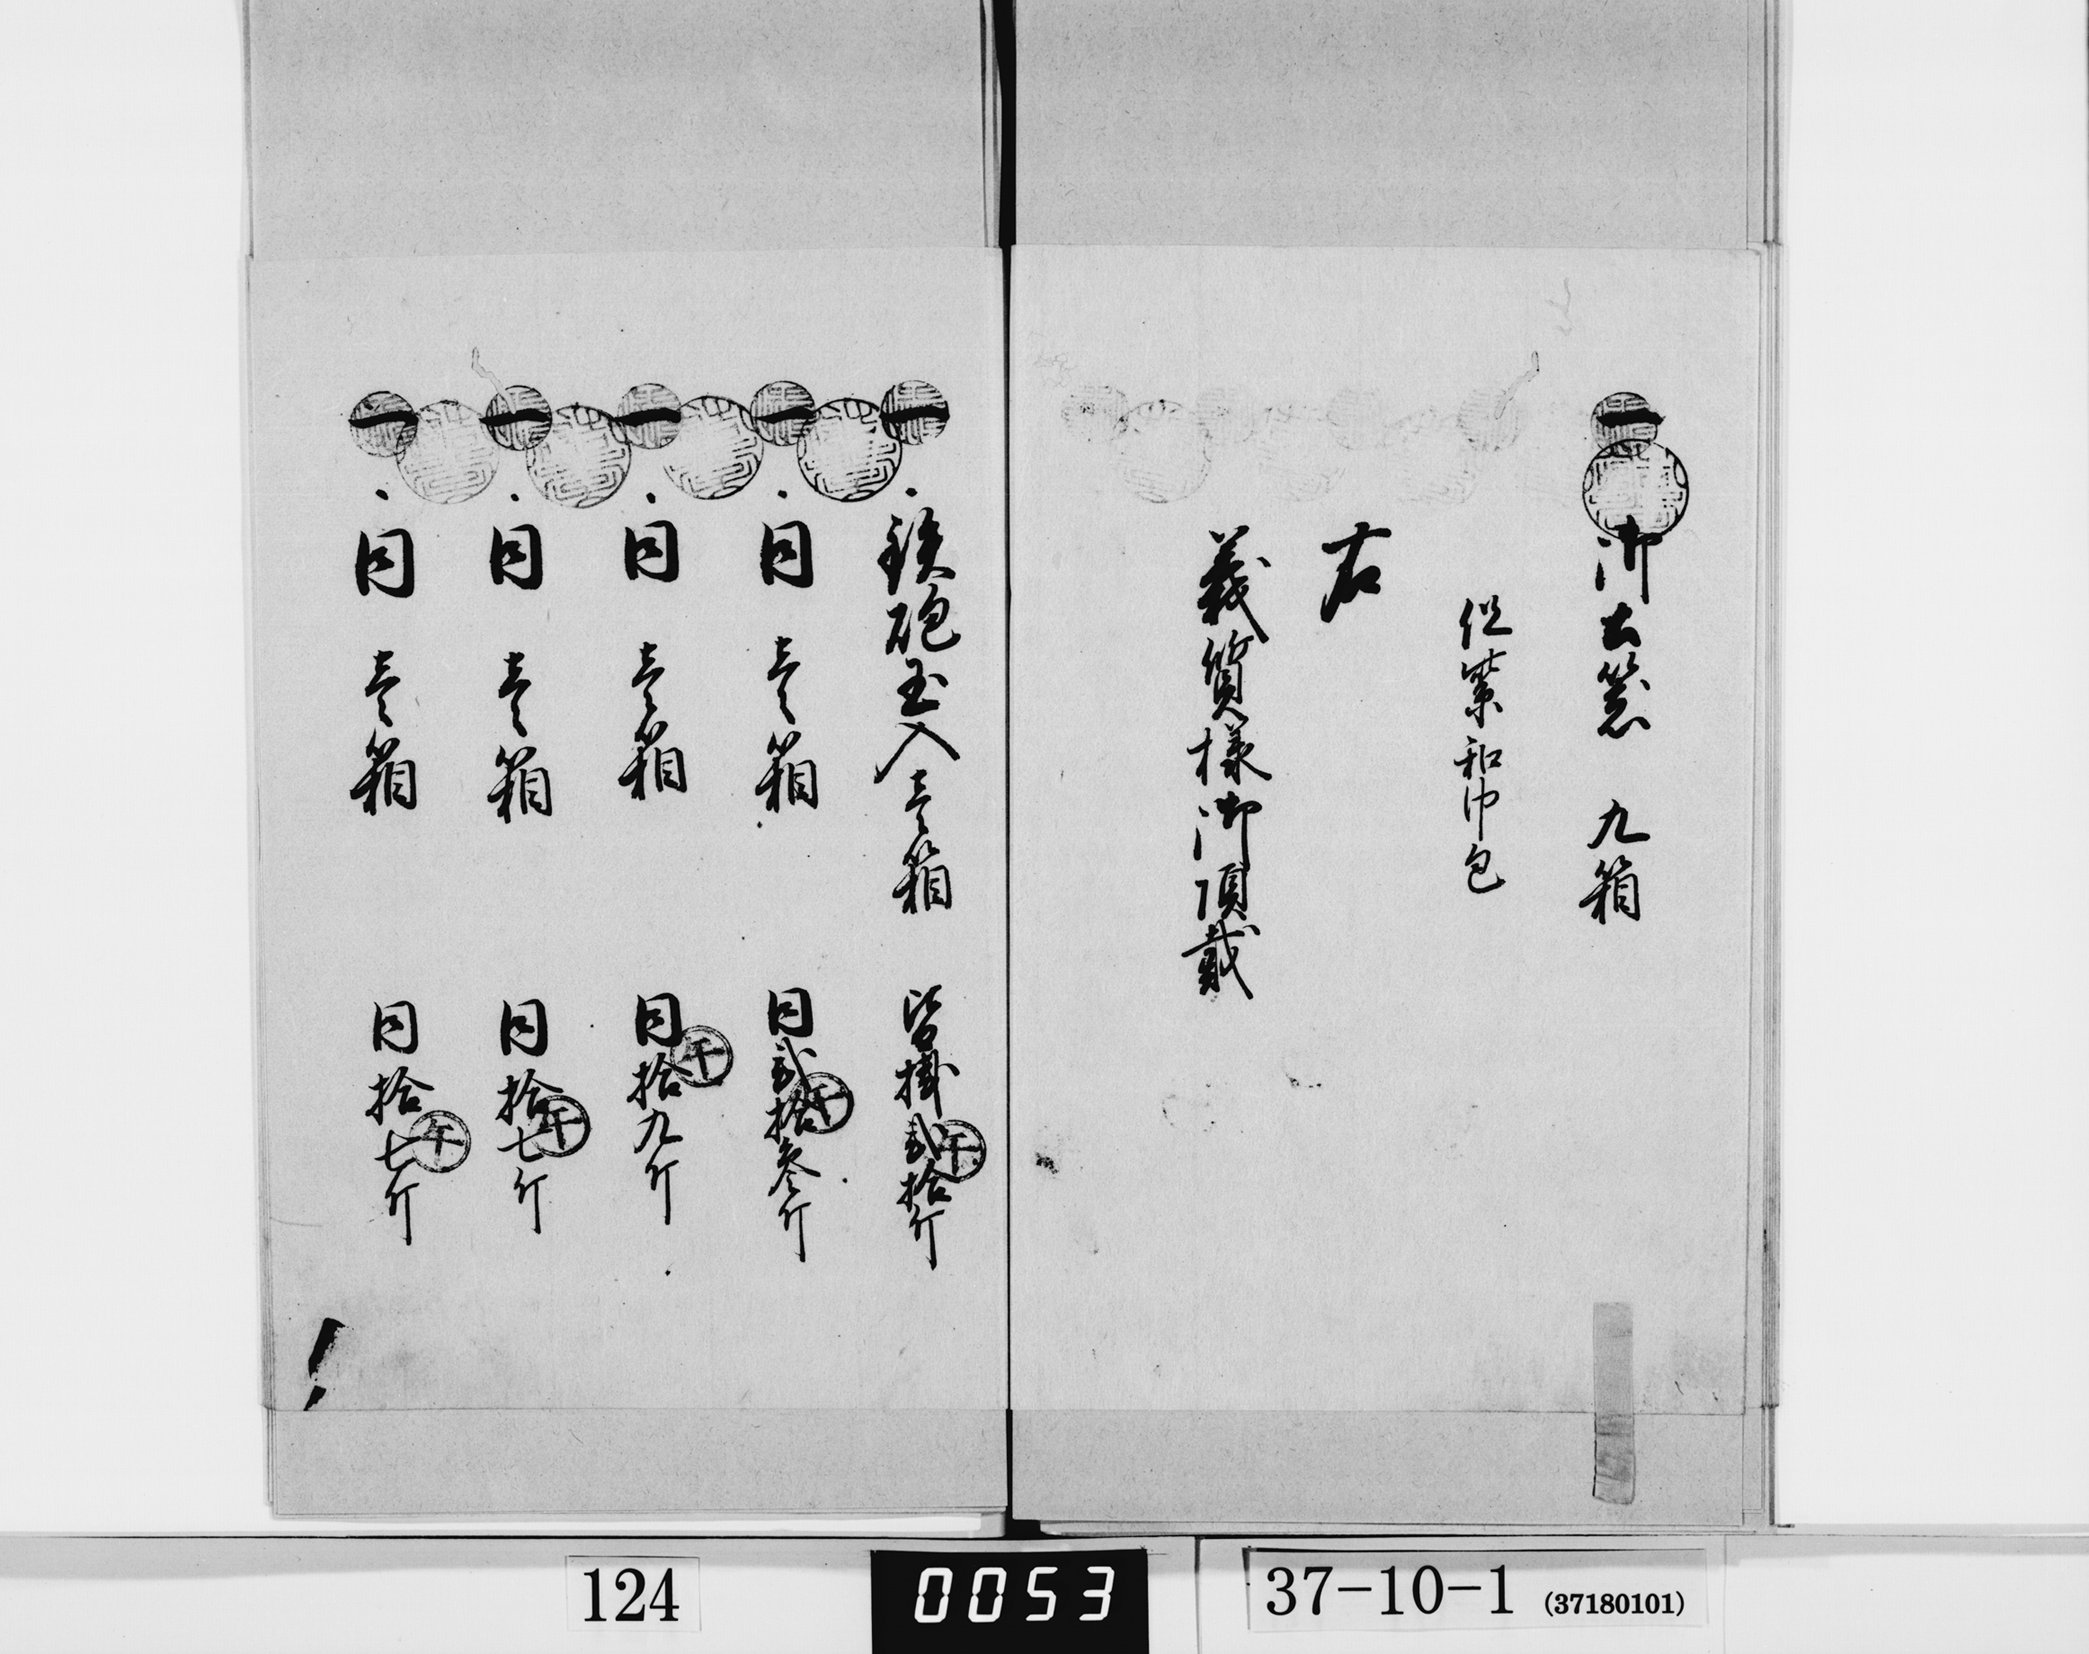 一 御土器 九箱
但紫和巾包
右
義質様御頂戴
一 鉄砲玉入壱箱 皆掛弐拾斤
一 同 壱箱 同弐拾参斤
一 同 壱箱 同拾九斤
一 同 壱箱 同拾七斤
一 同 壱箱 同拾七斤
午
午
午
午
午
124
0053
37-10-1 (37180101)